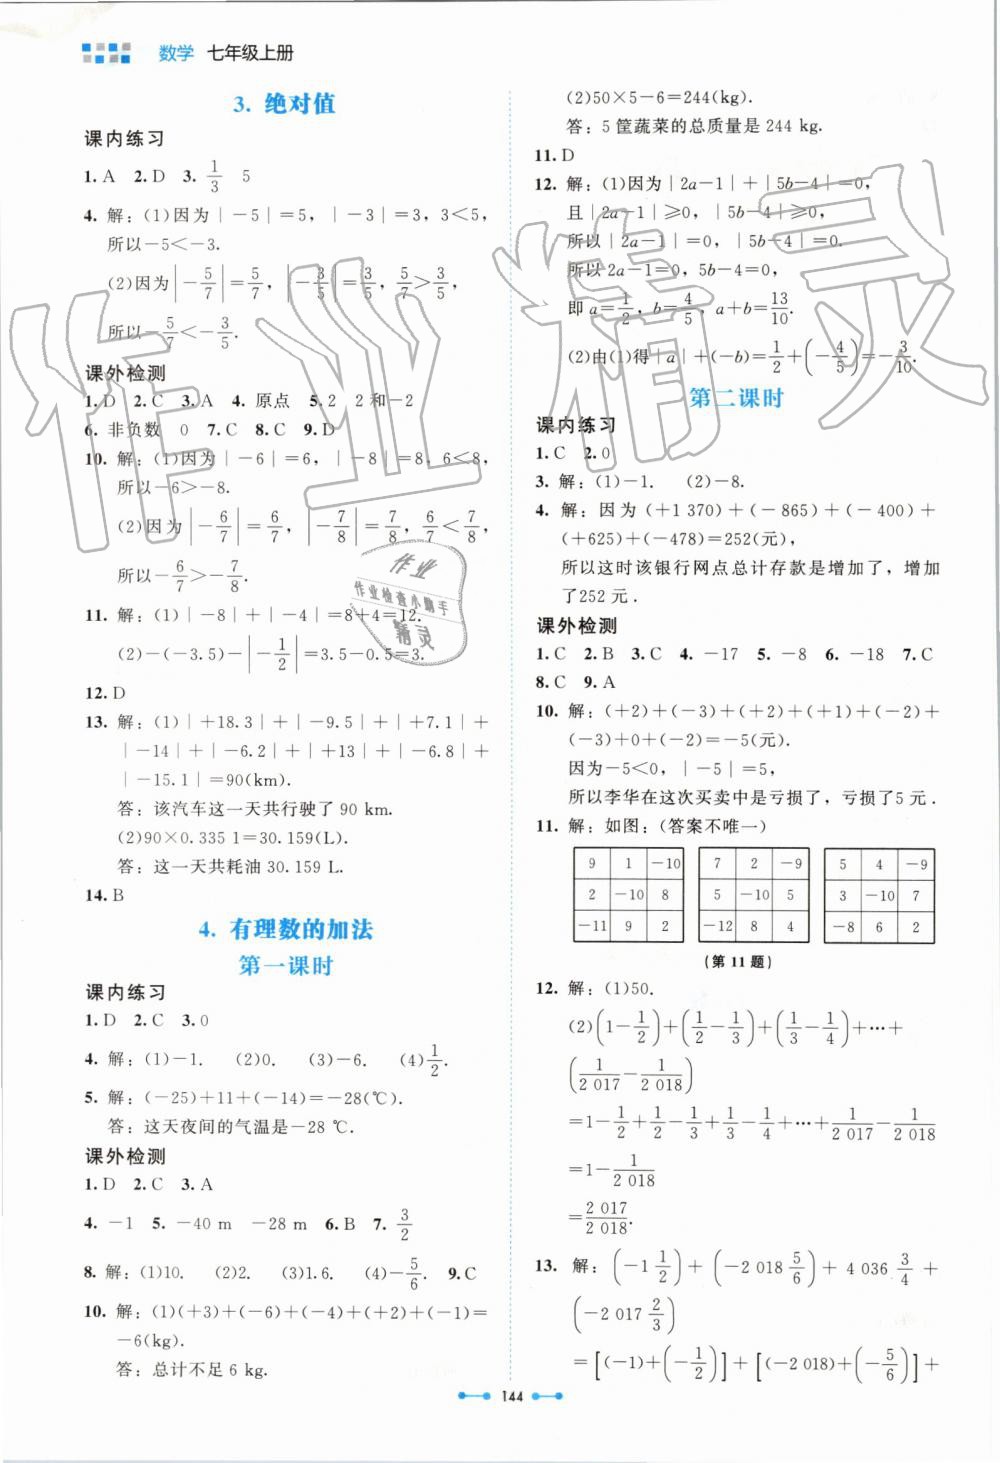 数学 七年级上册
3. 绝对值
课内练习
1. A 2. D 3. 1/3 5
4. 解:(1)因为|－5|＝5,|－3|＝3,3＜5,
所以－5＜－3.
(2)因为|－5/7|＝5/7,|－3/5|＝3/5,5/7＞3/5,
所以－5/7＜－3/5.
课外检测
1. D 2. C 3. A 4. 原点 5. 2 2和－2
6. 非负数 0 7. C 8. C 9. D
10. 解:(1)因为|－6|＝6,|－8|＝8,6＜8,
所以－6＞－8.
(2)因为|－6/7|＝6/7,|－7/8|＝7/8,6/7＜7/8,
所以－6/7＞－7/8.
11. 解:(1)|－8|＋|－4|＝8＋4＝12.
(2)－(－3.5)－|－1/2|＝3.5－0.5＝3.
12. D
13. 解:(1)|＋18.3|＋|－9.5|＋|＋7.1|＋
|－14|＋|－6.2|＋|＋13|＋|－6.8|＋
|－15.1|＝90(km).
答:该汽车这一天共行驶了 90 km.
(2)90×0.335 1＝30.159(L).
答:这一天共耗油 30.159 L.
14. B
4. 有理数的加法
第一课时
课内练习
1. D 2. C 3. 0
4. 解:(1)－1. (2)0. (3)－6. (4)1/2.
5. 解:(－25)＋11＋(－14)＝－28(℃).
答:这天夜间的气温是－28 ℃.
课外检测
1. D 2. C 3. A
4. －1 5. －40 m －28 m 6. B 7. 3/2
8. 解:(1)10. (2)2. (3)1.6. (4)－5/6. 9. C
10. 解:(1)(＋3)＋(－6)＋(－4)＋(＋2)＋(－1)＝
－6(kg).
答:总计不足 6 kg.
(2)50×5－6＝244(kg).
答:5 筐蔬菜的总质量是 244 kg.
11. D
12. 解:(1)因为|2a－1|＋|5b－4|＝0,
且|2a－1|≥0,|5b－4|≥0,
所以|2a－1|＝0,|5b－4|＝0.
所以 2a－1＝0,5b－4＝0.
即 a＝1/2,b＝4/5,a＋b＝13/10.
(2)由(1)得|a|＋(－b)＝1/2＋(－4/5)＝－3/10.
第二课时
课内练习
1. C 2. 0
3. 解:(1)－1. (2)－8.
4. 解:因为(＋1 370)＋(－865)＋(－400)＋
(＋625)＋(－478)＝252(元),
所以这时该银行网点总计存款是增加了,增加
了252 元.
课外检测
1. C 2. B 3. C 4. －17 5. －8 6. －18 7. C
8. C 9. A
10. 解:(＋2)＋(－3)＋(＋2)＋(＋1)＋(－2)＋
(－3)＋0＋(－2)＝－5(元).
因为－5＜0,|－5|＝5,
所以李华在这次买卖中是亏损了,亏损了5 元.
11. 解:如图:(答案不唯一)
9 1 －10 7 2 －9 5 4 －9
2 －10 8 5 －10 5 3 －10 7
－11 9 2 －12 8 4 －8 6 2
(第 11 题)
12. 解:(1)50.
(2)(1－1/2)＋(1/2－1/3)＋(1/3－1/4)＋…＋
(1/2 017－1/2 018)
＝1－1/2＋1/2－1/3＋1/3－1/4＋…＋1/2 017－1/2 018
＝1－1/2 018
＝2 017/2 018.
13. 解:(－1 1/2)＋(－2 018 5/6)＋4 036 3/4＋
(－2 017 2/3)
＝[(－1)＋(－1/2)]＋[(－2 018)＋(－5/6)]＋
144
作业精灵
作业
作业检查小助手
精灵